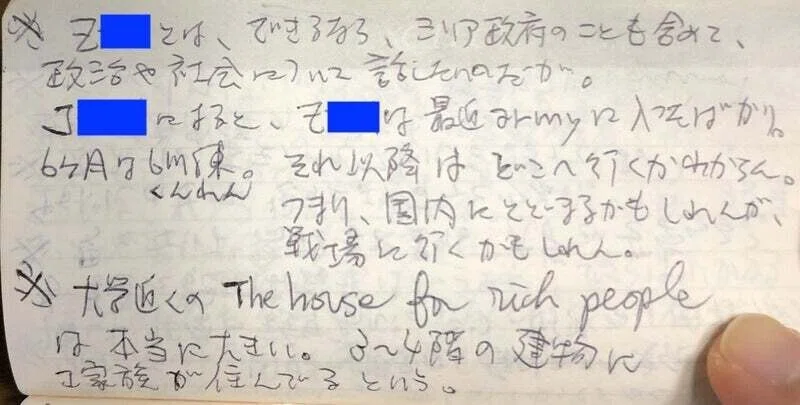 ※ Z とは、できるなら、シリア政府のことも含めて、
政治や社会について話したいのだが。
J によると、Z は最近armyに入ったばかり。
6ヶ月は訓練。それ以降はどこへ行くかわからん。
くんれん
つまり、国内にとどまるかもしれんが、
戦場に行くかもしれん。
※ 大学近くの The house for rich people
は本当に大きい。3〜4階の建物に
1家族が住んでるという。